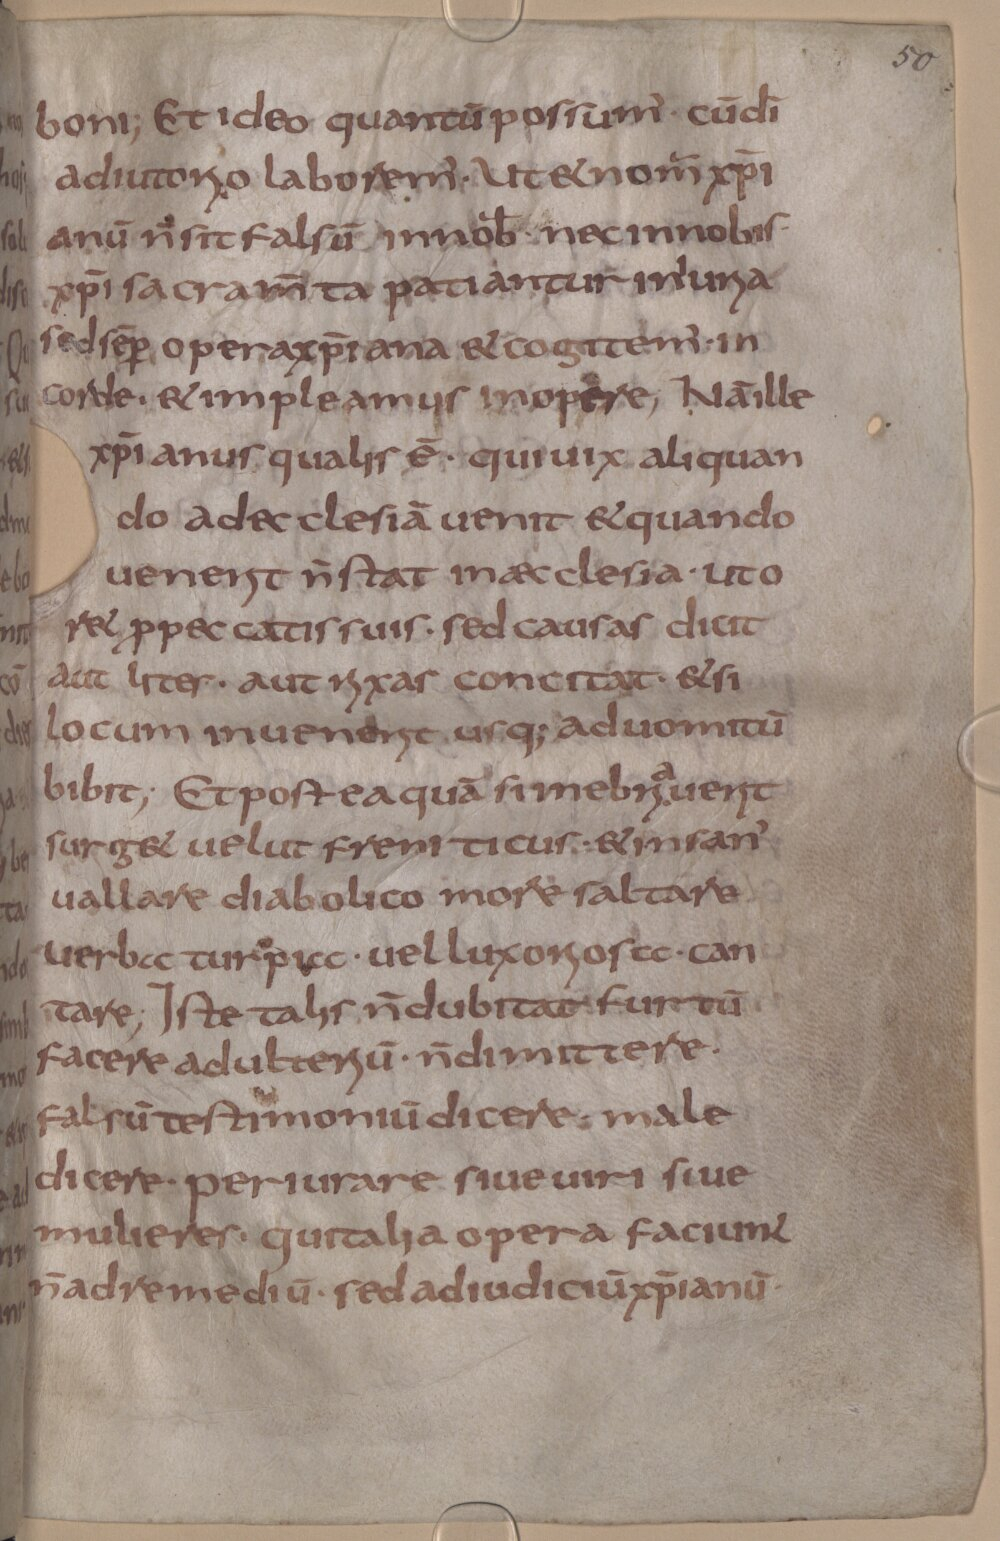 50
boni; Et ideo quantū possum̄ · cūdī
adiutorio laborem̄ · Ut & nom̄ xp̄i
anū n̄ sit falsū innob̄ · nec innobis ·
xp̄i sacram̄ta patiantur iniuria
sed sēp opera xp̄iana & cogitem̄ · in
corde · & impleamus inopere; Nā ille
xp̄ianus qualis ē · qui uix aliquan
do ad ecclesiā uenit & quando
uenerit n̄ stat in æcclesia · ut o
r& p peccatis suis · sed causas dicit
aut lites · aut rixas concitat · & si
locum inuenerit usq; ad uomitū
bibit; Et posteaquā sinebriauerit
surg& uelut freniticus · & insan'
uallare diabolico more saltare
uerba turpia · uel luxoriosa · can
tare; Iste talis n̄ dubitat furtū
facere adulteriū · n̄ dimittere ·
falsū testimoniū dicere · male
dicere · periurare siue uiri siue
mulieres · qui talia opera faciunt
n̄ ad remediū · sed ad iudiciū xp̄ianū ·